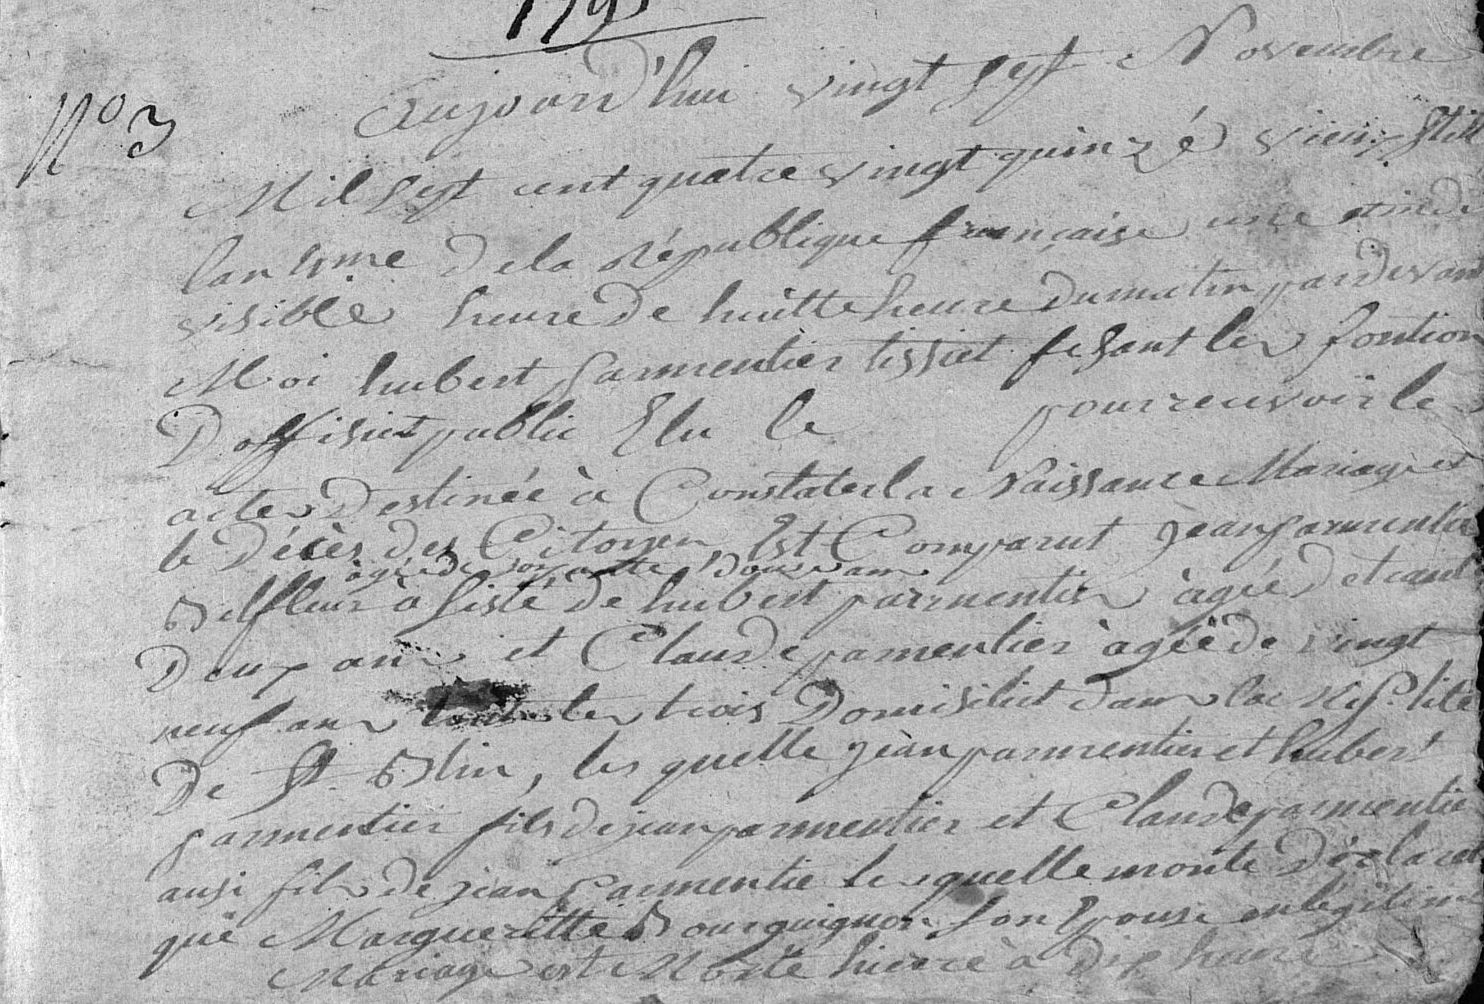 1795
N° 3
aujourd'hui vingt sept Novembre
Mil sept cent quatre vingt quinzé vieux stile
lan 4me de la République française une et indi
visible heure de huitte heure du matin pardevan
Moi hubert parmentier tissiet fesant les fontion
D offisiet public Elu le pour recevoir le
actes Destinée à Constater la Naissance Mariage et
le Décès des Citoyen Est Comparut jean parmentier
agée de soixante Douze ans
Belfleur asisté de hubert parmentier àgée
Deux ans et Claude parmentier àgée de vingt
neuf ans tout les trois Domisiliet dans la
De St. Blin, les quelle jean parmentier et hubert
parmentier fils de jean parmentier et Claude parmentie
ausi fils de jean parmentie lesquelle monte Déclaree
que Margueritte Bourguignon son Epouse en legitime
Mariage est Morte hierre à dix heure